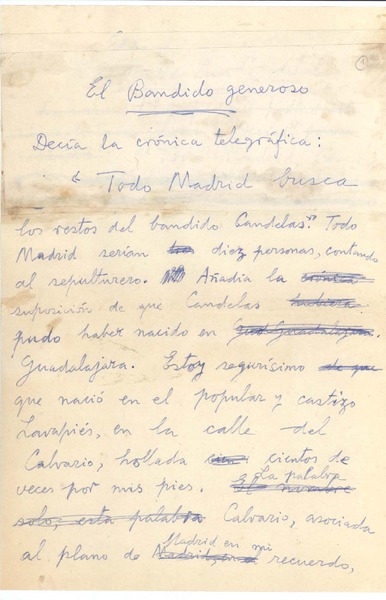 1
El Bandido generoso
Decía la crónica telegráfica:
"Todo Madrid busca
los restos del bandido Candelas". Todo
Madrid serían diez personas, contando
al sepulturero. Añadía la crónica
suposición de que Candelas hubiera
pudo haber nacido en Guadalajara.
Guadalajara. Estoy segurísimo de que
que nació en el popular y castizo
Lavapiés, en la calle del
Calvario, hollada cien cientos de
La palabra
veces por mis pies. El nombre
solo, esta palabra Calvario, asociada
Madrid en mi
al plano de Madrid, en el recuerdo,